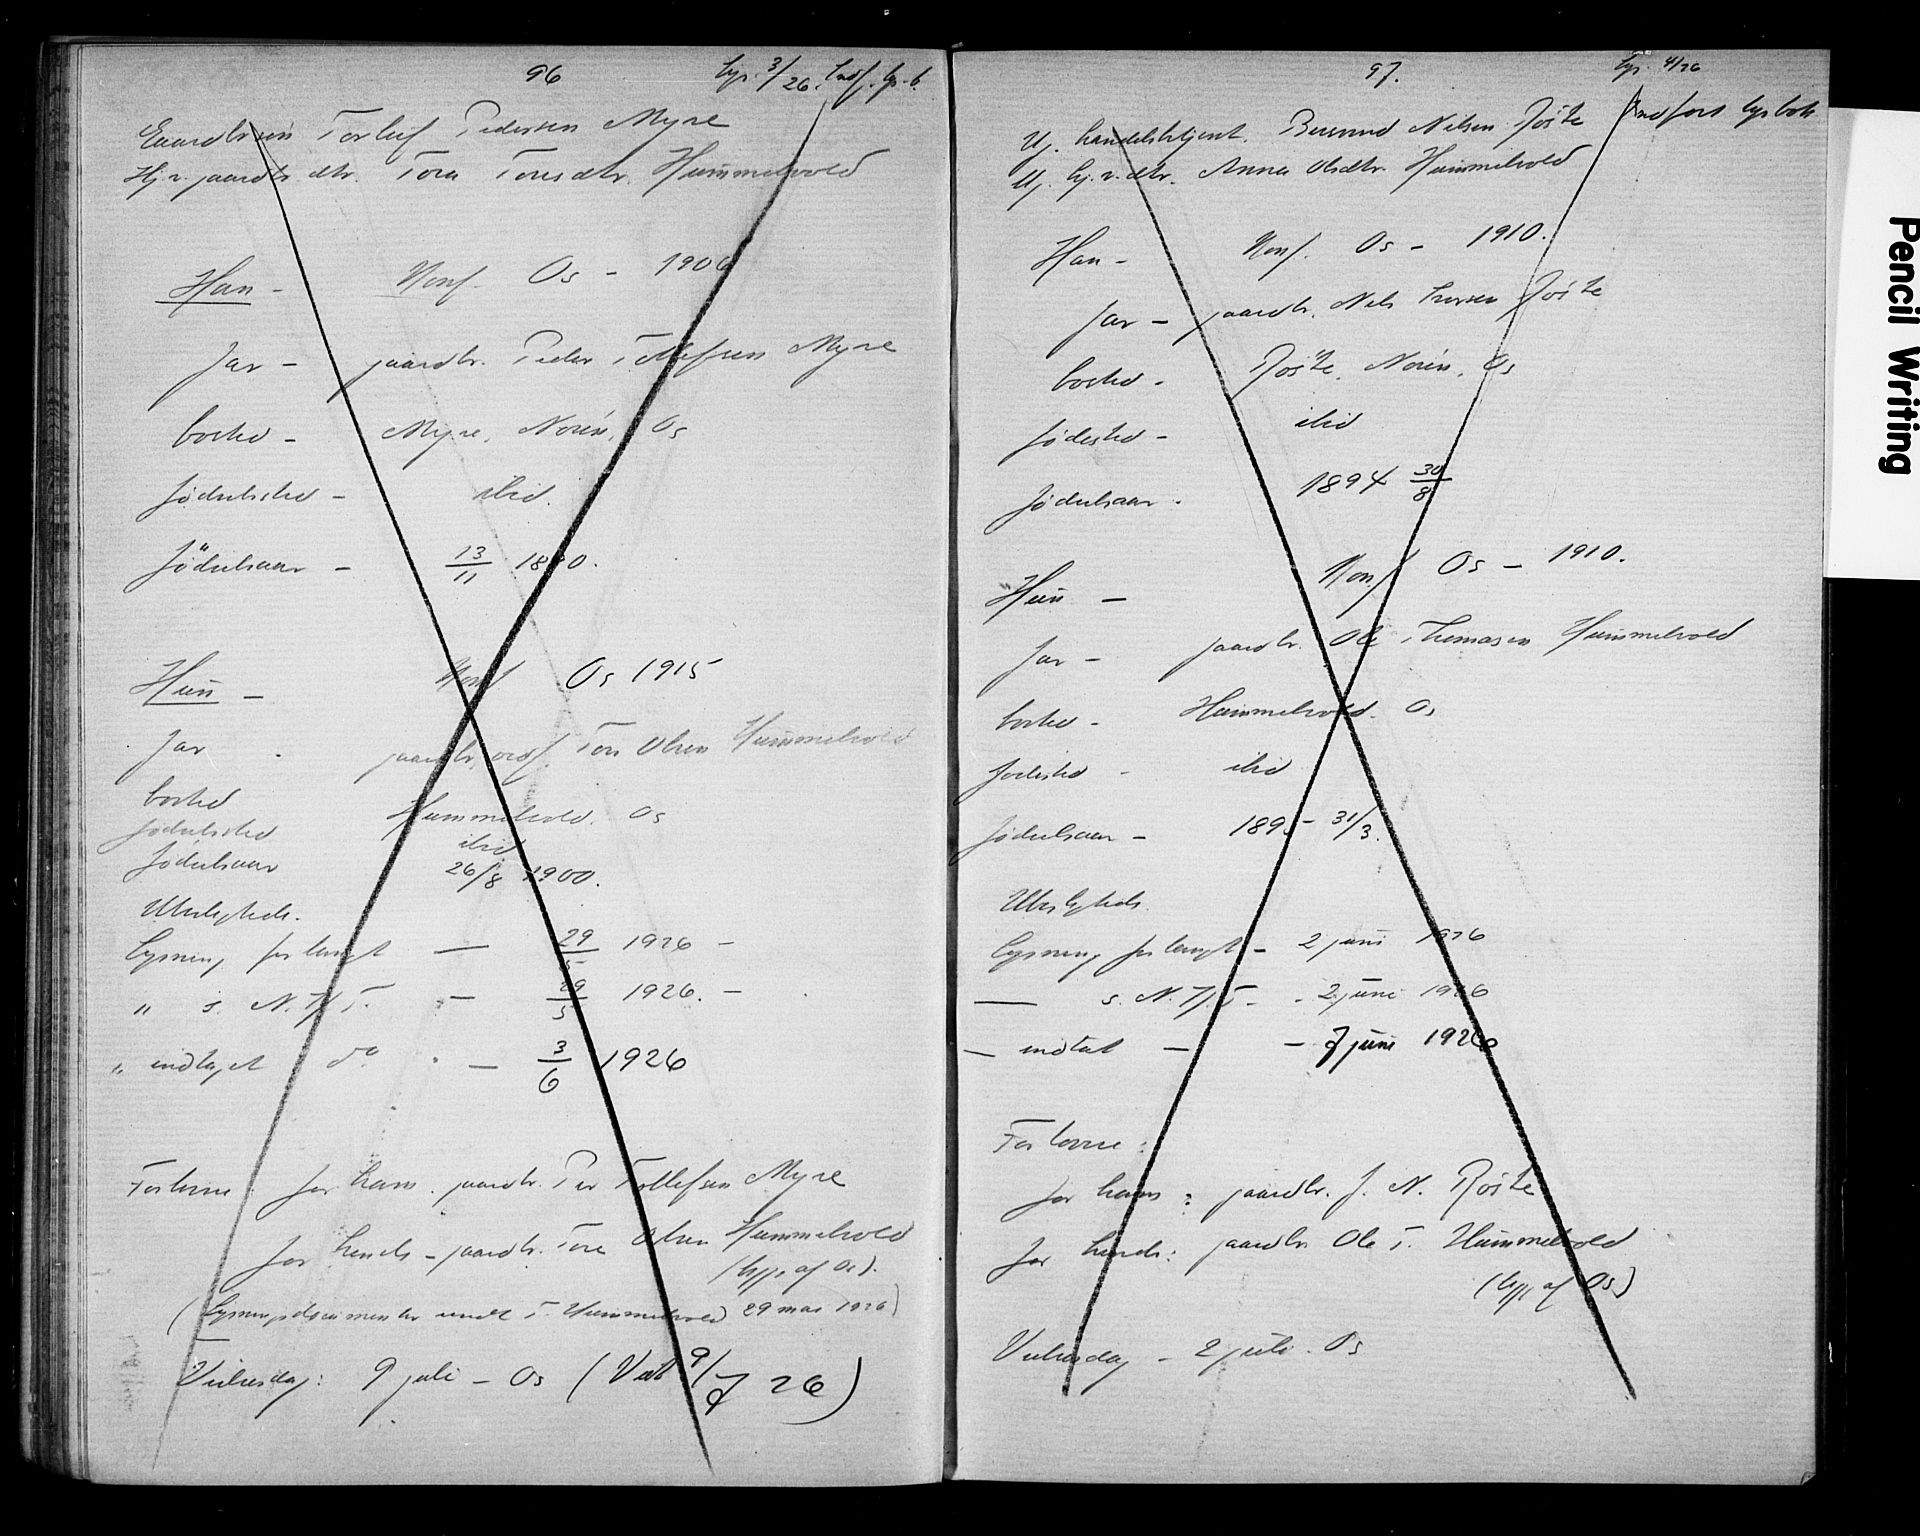 96
Lys. 3/26. Indf. lys. b.
Gaardbr. sön Torleif Pedersen Myre
Hj. v. gaardbr. dtr. Tora Toresdtr. Hummelvold
Han - Konf. Os - 1906
Far - gaardbr. Peder Tollefsen Myre
bosted - Myre, Norén, Os
födested - ibid.
Födselsaar - 13/11 1890.
Hun - Konf Os 1915
Far - gaardbr., ordf. Tore Olsen Hummelvold
bosted Hummelvold. Os
födested ibid
födselsaar 26/8 1900.
Ubeslegtede.
Lysning forlangt — 29/5 1926 -
" s. N. H. T. — 29/5 1926. -
" indtaget do. — 3/6 1926
Forlovere: for ham. gaardbr. Per Tollefsen Myre
for hende - gaardbr. Tore Olsen Hummelvold
(begge af Os).
(Lysningsdokumenter sendt T. Hummelvold 29 mai 1926)
Vielsesdag: 9 juli - Os (Viet 9/7 26)
97.
Lys. 4/26
Indfört lysbok
Uj. handelsbetjent. Bersvend Nilsen Röste
Uj. hj. v. dtr. Anna Olsdtr. Hummelvold
Han - Konf. Os - 1910.
Far - gaardbr. Nils Röste
bosted - Röste, Norén, Os
födested - ibid
födselsaar - 1894 30/8
Hun — Konf Os - 1910.
far - gaardbr. Ole Thomasen Hummelvold
bosted - Hummelvold. Os
födested - ibid
födselsaar - 1895 - 31/3.
Ubeslegtede.
Lysning forlangt - 2 juni 1926
— s. N. H. T. - 2 juni 1926
— indtat — - 7 juni 1926
Forlovere:
for ham: gaardbr. J. N. Röste
for hende: gaardbr Ole T. Hummelvold
(begge af Os)
Vielsesdag - 2 juli. Os
Pencil Writing